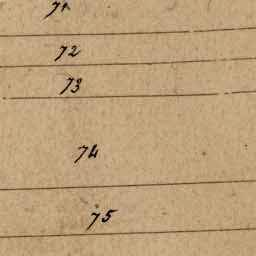 71
72
73
74
75